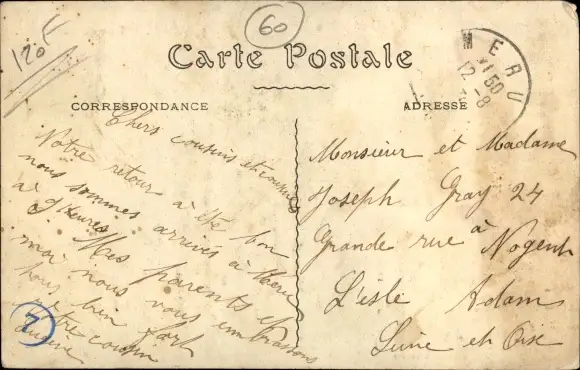 120F
60
Carte Postale
CORRESPONDANCE
ADRESSE
MERU
12 8
Chers cousins et cousines
Notre retour à été bon
nous sommes arrivés à Meru
à 9 heures
Mes parents et
moi nous vous embrassons
tous bien fort
votre cousin
Eugène
7
Monsieur et Madame
Joseph Gray 24
Grande rue à Nogent
L'isle Adam
Seine et Oise